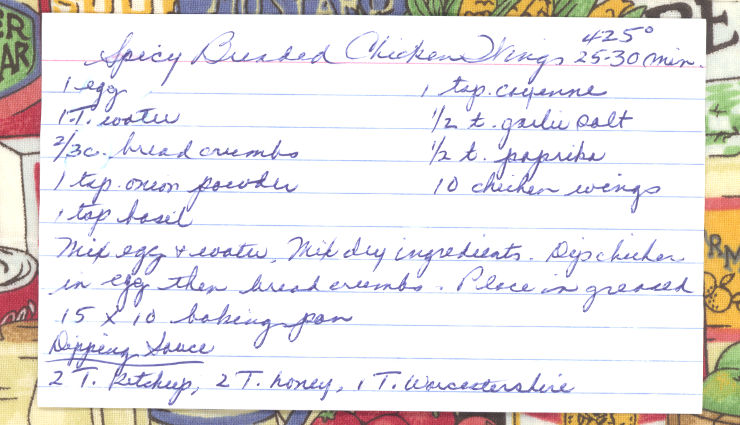 425°
Spicy Breaded Chicken Wings 25-30 min.
1 egg 1 tsp. cayenne
1 T. water 1/2 t. garlic salt
2/3 c. bread crumbs 1/2 t. paprika
1 tsp. onion powder 10 chicken wings
1 tsp basil
Mix egg + water, Mix dry ingredients. Dip chicken
in egg then bread crumbs. Place in greased
15 x 10 baking pan
Dipping Sauce
2 T. Ketchup, 2 T. honey, 1 T. Worcestershire